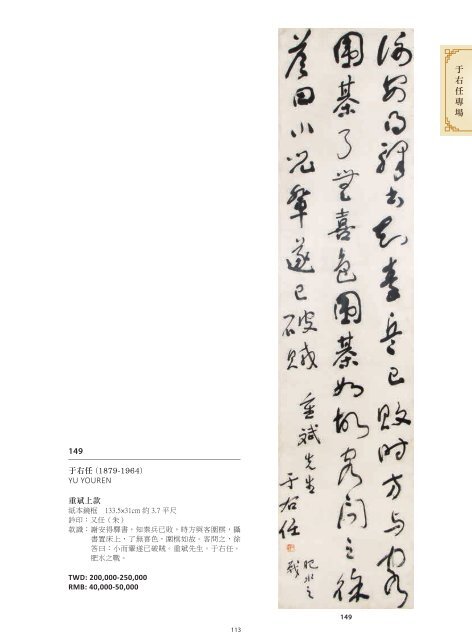 于右任專場
謝安得驛書知秦兵已敗時方与客
圍棊了無喜色圍棊如故客問之徐
答曰小兒輩遂已破賊
重斌先生
于右任
肥水之
戰
149
149
于右任 (1879-1964)
YU YOUREN
重斌上款
紙本鏡框 133.5x31cm 約 3.7 平尺
鈐印:又任(朱)
款識:謝安得驛書,知秦兵已敗,時方與客圍棋,攝
書置床上,了無喜色,圍棋如故。客問之,徐
答曰:小而輩遂已破賊。重斌先生。于右任。
肥水之戰。
TWD: 200,000-250,000
RMB: 40,000-50,000
113